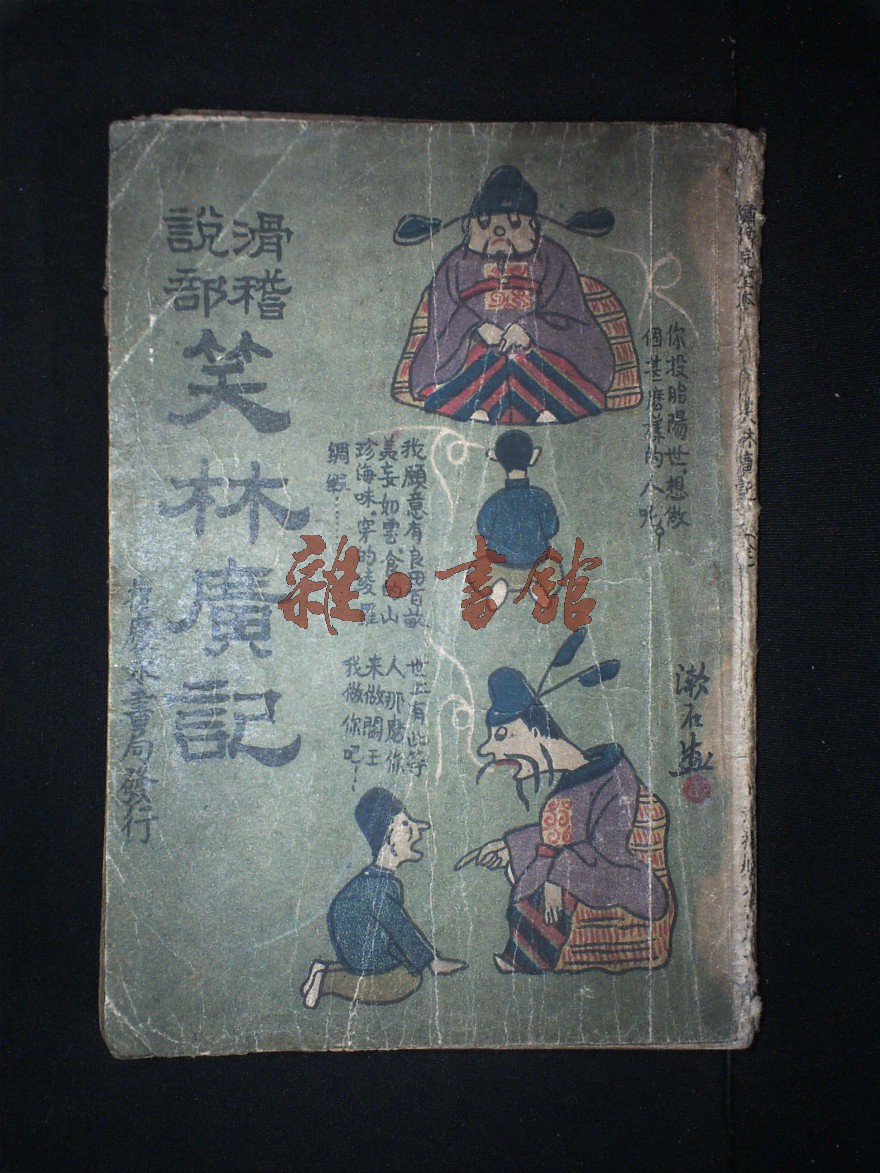 你投胎陽世,想做
個甚麽樣的人呢?
我願意有良田百畝
美妾如雲,食的山
珍海味,穿的凌羅
綢緞……
世上有此等
人那麽你
來做閻王
我做你吧!
漱石
滑稽
說部
笑林廣記
書局發行
雜·書館